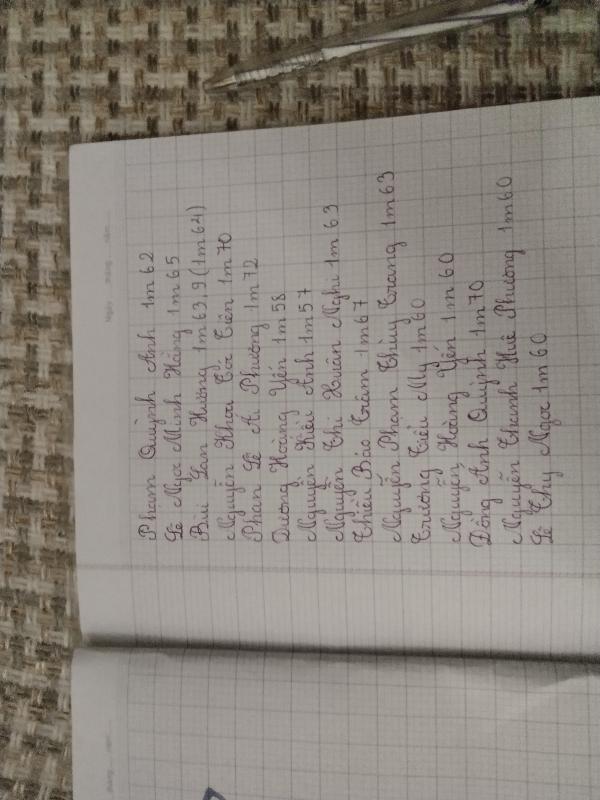 Ngày tháng năm
Phạm Quỳnh Anh 1m62
Lê Ngọc Minh Hằng 1m65
Bùi Lan Hương 1m63,9 (1m64)
Nguyễn Khoa Tóc Tiên 1m70
Phan Lê A. Phương 1m72
Dương Hoàng Yến 1m58
Nguyễn Kiều Anh 1m57
Nguyễn Thị Xuân Nghi 1m63
Thiều Bảo Trâm 1m67
Nguyễn Phạm Thùy Trang 1m63
Trương Tiểu My 1m60
Nguyễn Hoàng Yến 1m60
Đồng Ánh Quỳnh 1m70
Nguyễn Thanh Huê Phương 1m60
Lê Thy Ngọc 1m60
tháng năm